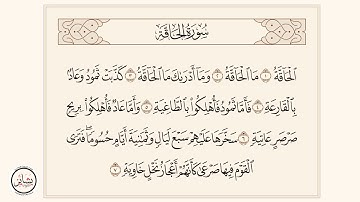 سُورَةُ الحَاقَّةِ
الْحَاقَّةُ ١ مَا الْحَاقَّةُ ٢ وَمَا أَدْرَىٰكَ مَا الْحَاقَّةُ ٣ كَذَّبَتْ ثَمُودُ وَعَادٌۢ
بِالْقَارِعَةِ ٤ فَأَمَّا ثَمُودُ فَأُهْلِكُوا۟ بِالطَّاغِيَةِ ٥ وَأَمَّا عَادٌ فَأُهْلِكُوا۟ بِرِيحٍ
صَرْصَرٍ عَاتِيَةٍ ٦ سَخَّرَهَا عَلَيْهِمْ سَبْعَ لَيَالٍ وَثَمَٰنِيَةَ أَيَّامٍ حُسُومًا فَتَرَى
الْقَوْمَ فِيهَا صَرْعَىٰ كَأَنَّهُمْ أَعْجَازُ نَخْلٍ خَاوِيَةٍ ٧